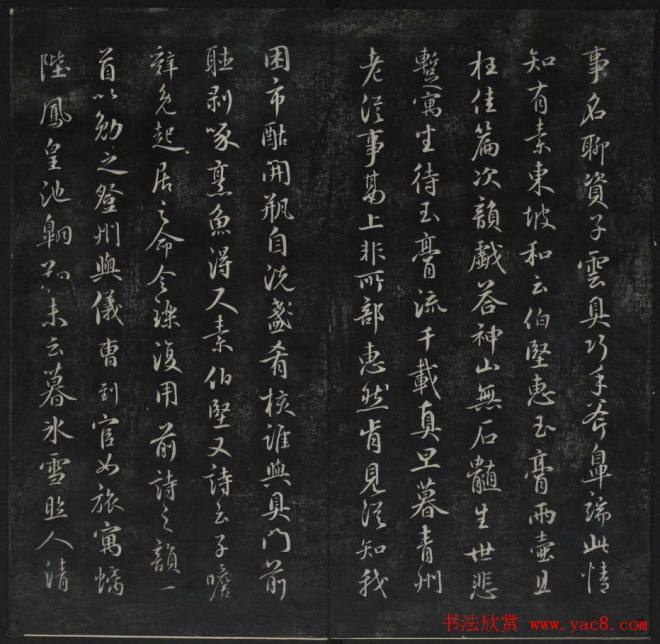 事名聊資子雲具巧手斧鼻端此情
知有素東坡和云伯堅惠玉膏兩壺且
枉佳篇次韻戲荅神山無石髓生世悲
蹔寓坐待玉膏流千載真旦暮青州
老従事鬲上非所部惠然肯見從知我
困市酤開瓶自洗盞肴核誰與具門前
聴剥啄烹魚得尺素伯堅又詩云子瞻
辭免起居之命令璨復用前詩之韻一
首以勉之登州與儀曹到官如旅寓螭
陛鳳皇池翱翔未云暮冰雪照人清
书法欣赏 www.yac8.com